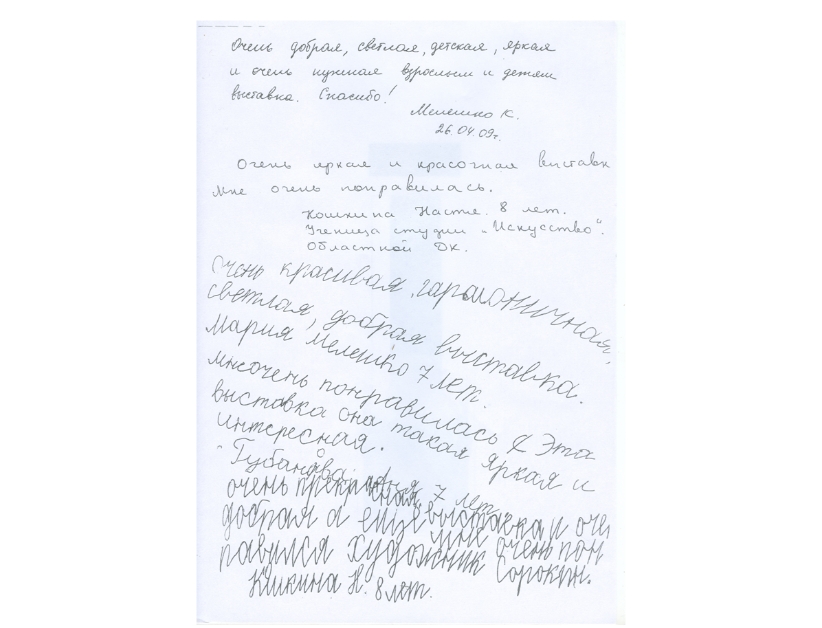 Очень добрая, светлая, детская, яркая
и очень нужная взрослым и детям
выставка. Спасибо!
Мелешко К.
26.04.09г.
Очень яркая и красочная выставк
Мне очень понравилась.
Кошкина Настя. 8 лет.
Ученица студии „Искусство".
Областной ДК.
Очень красивая, гармоничная,
светлая, добрая выставка.
Мария Мелешко 7 лет.
мнеочень понравилась Эта
выставка она такая яркая и
интересная.
Губанова 7 лет
очень прекрасная выставка и оче
добрая а ещё мне очень пон
равился художник Сорокин.
Кшкина Н. 8 лет.